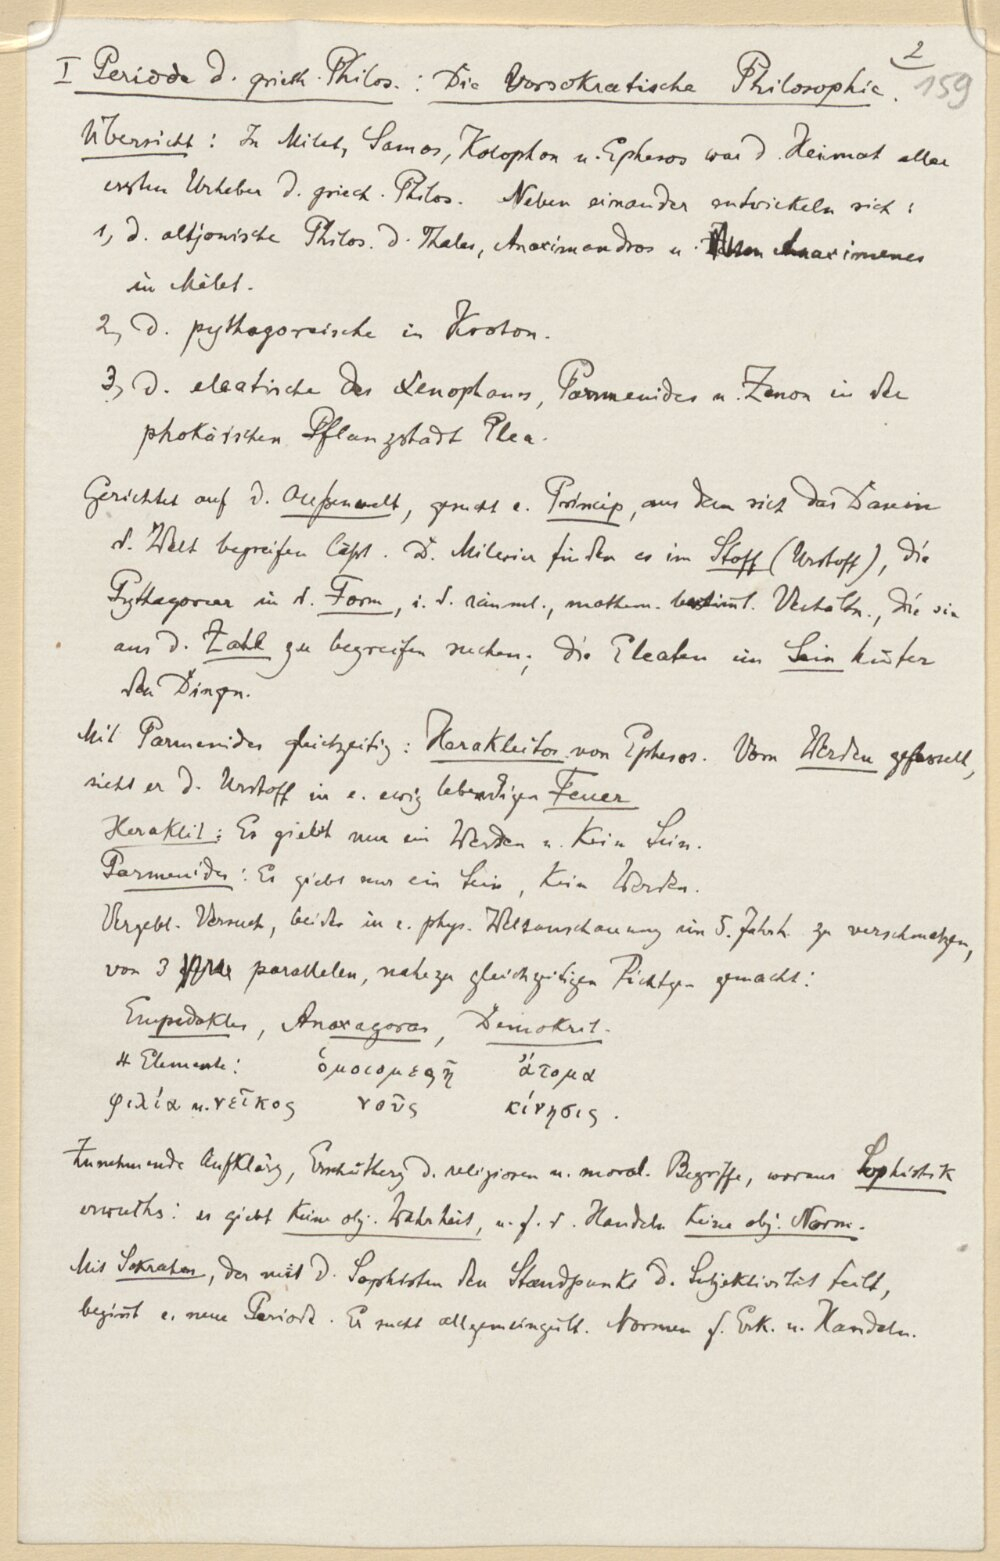 2
159
I Periode d. griech. Philos.: Die Vorsokratische Philosophie.
Übersicht: In Milet, Samos, Kolophon u. Ephesos war d. Heimat aller
ersten Urheber d. griech. Philos. Neben einander entwickeln sich:
1, d. altjonische Philos. d. Thales, Anaximandros u. Anaximenes
in Milet.
2, d. pythagoreische in Kroton.
3, d. eleatische des Xenophanes, Parmenides u. Zenon in der
phokäischen Pflanzstadt Elea.
Gerichtet auf d. Außenwelt, gesucht e. Princip, aus dem sich das Dasein
d. Welt begreifen läßt. D. Milesier finden es im Stoff (Urstoff), die
Pythagoreer in d. Form, i. d. räuml., mathem. bestimt. Verhältn., die sie
aus d. Zahl zu begreifen suchen; die Eleaten im Sein hinter
den Dingen.
Mit Parmenides gleichzeitig: Herakleitos von Ephesos. Vom Werden gefesselt,
sieht er d. Urstoff in e. ewig lebendigen Feuer
Heraklit: Es giebt nur ein Werden u. kein Sein.
Parmenides: Es giebt nur ein Sein, kein Werden.
Vergebl. Versuch, beides in e. phys. Weltanschauung im 5. Jahrh. zu verschmelzen,
von 3 parallelen, nahezu gleichzeitigen Richtgen gemacht:
Empedokles, Anaxagoras, Demokrit.
4 Elemente: ὁμοιομερῆ ἄτομα
φιλία u. νεῖκος νοῦς κίνησις.
Zunehmende Aufklärg, Erschütterg d. religiosen u. moral. Begriffe, woraus Sophistik
erwuchs: es giebt keine obj. Wahrheit, u. f. d. Handeln keine obj. Norm.
Mit Sokrates, der mit d. Sophisten den Standpunkt d. Subjektivität teilt,
begiñt e. neue Periode. Er sucht allgemeingült. Normen f. Erk. u. Handeln.